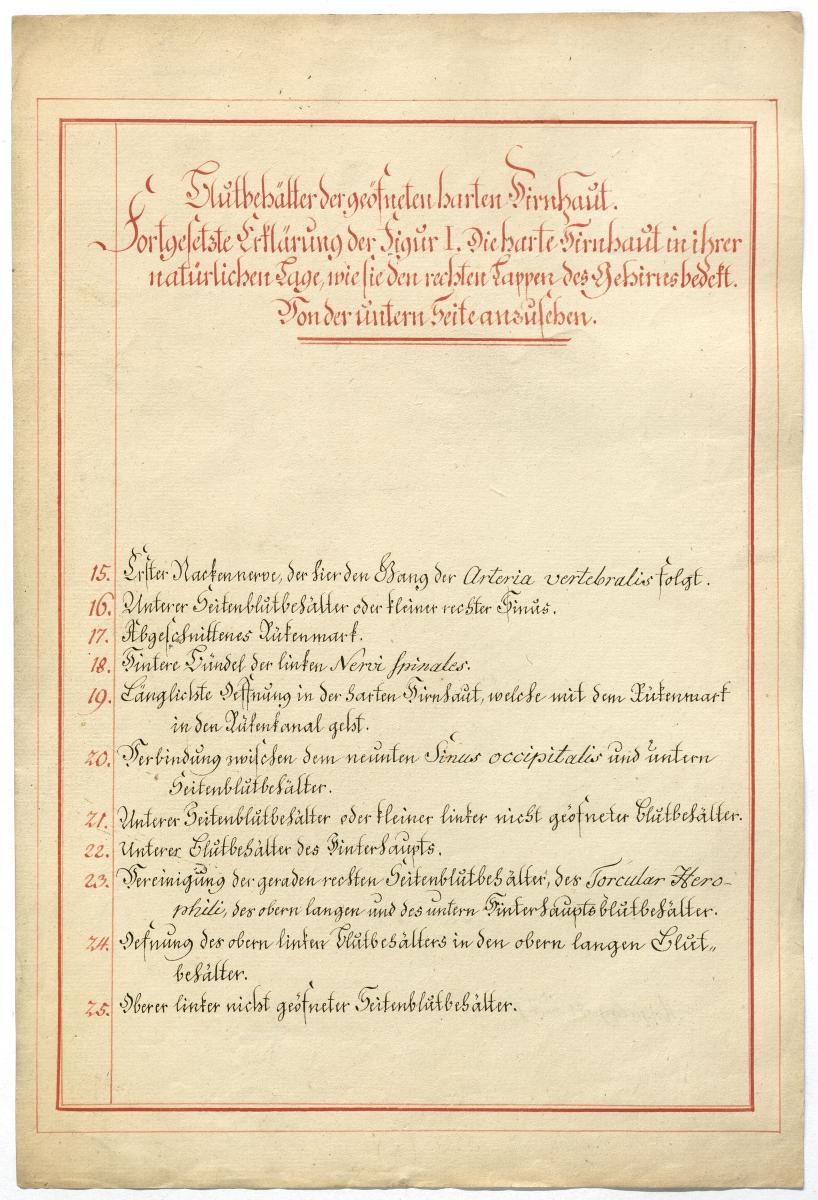 Blutbehälter der geöfneten harten Hirnhaut.
Fortgesetzte Erklärung der Figur I. Die harte Hirnhaut in ihrer
natürlichen Lage, wie sie den rechten Lappen des Gehirns bedekt.
Von der untern Seite anzusehen.
15. Erster Nackennerve, der hier den Gang der Arteria vertebralis folgt.
16. Unterer Seitenblutbehälter oder kleiner rechter Sinus.
17. Abgeschnittenes Rükenmark.
18. Hintere Bündel der linken Nervi spinales.
19. Länglichte Oeffnung in der harten Hirnhaut, welche mit dem Rükenmark
in den Rükenkanal geht.
20. Verbindung zwischen dem neunten Sinus occipitalis und untern
Seitenblutbehälter.
21. Unterer Seitenblutbehälter oder kleiner linker nicht geöfneter Blutbehälter.
22. Unterer Blutbehälter des Hinterhaupts.
23. Vereinigung der geraden rechten Seitenblutbehälter, des Torcular Hero-
phili, des obern langen und des untern Hinterhauptsblutbehälter.
24. Oefnung des obern linken Blutbehälters in den obern langen Blut„
behälter.
25. Oberer linker nicht geöfneter Seitenblutbehälter.